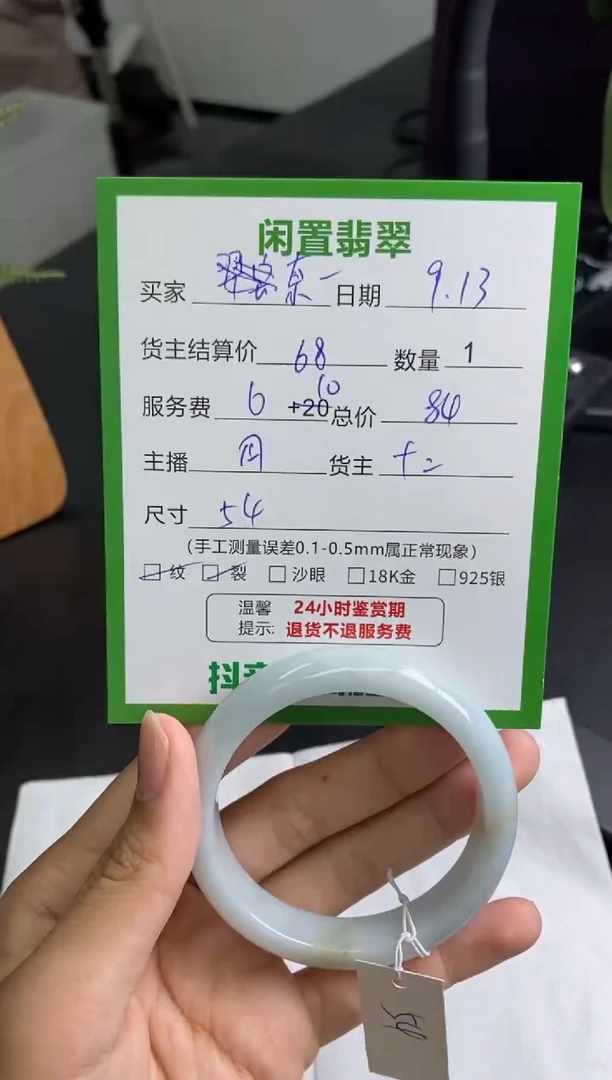 闲置翡翠
买家 东一 日期 9.13
货主结算价 68 数量 1
服务费 6 +20 10 总价 84
主播 四 货主 十二
尺寸 54
(手工测量误差0.1-0.5mm属正常现象)
纹 裂 沙眼 18K金 925银
温馨 24小时鉴赏期
提示: 退货不退服务费
抖音
54